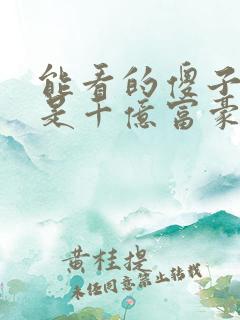 能看的傻子
是十億富豪
黄桂提
未经同意禁止转载